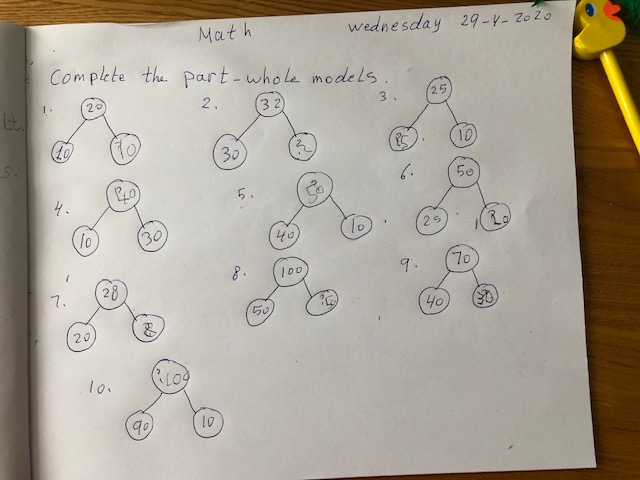 Math wednesday 29-4-2020
Complete the part-whole models.
1. 20 2. 32 3. 25
10 10 30 ?2 ?5 10
4. ?40 5. ?50 6. 50
10 30 40 10 25
7. 28 8. 100 9. 70
20 8 50 40 30
10. ?10
90 10